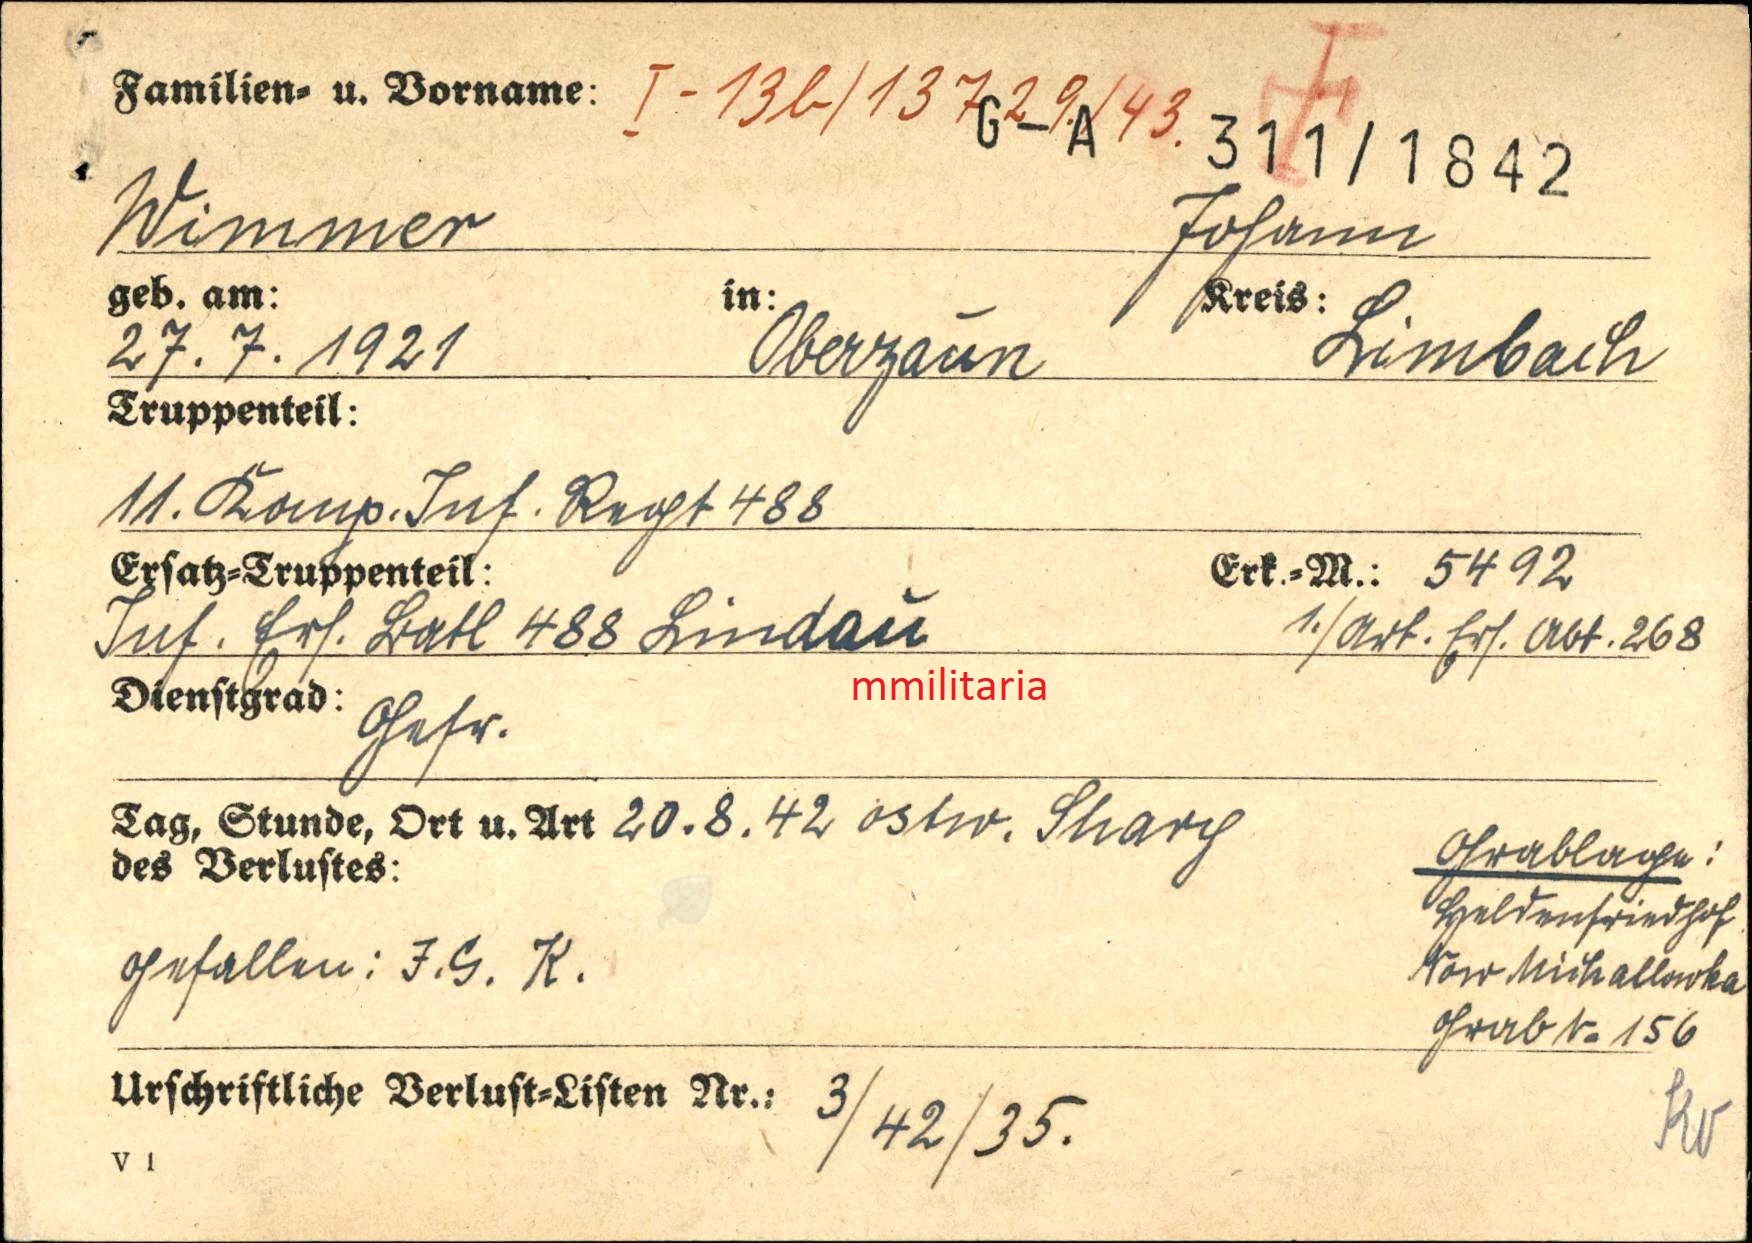 Familien- u. Vorname: I - 13b/13729/43.
G-A 311/1842
Wimmer Johann
geb. am: in: Kreis:
27. 7. 1921 Oberzaun Limbach
Truppenteil:
11. Komp. Inf. Regt 488
Ersatz-Truppenteil: Erk.-M.: 5492
Inf. Ers. Batl 488 Lindau 1./Art. Ers. Abt. 268
Dienstgrad: Gefr.
mmilitaria
Tag, Stunde, Ort u. Art 20.8.42 ostw.
des Verlustes:
Grablage:
Heldenfriedhof
gefallen: I.G. K.
Grab Nr. 156
Urschriftliche Verlust-Listen Nr.: 3/42/35.
Kv
V 1